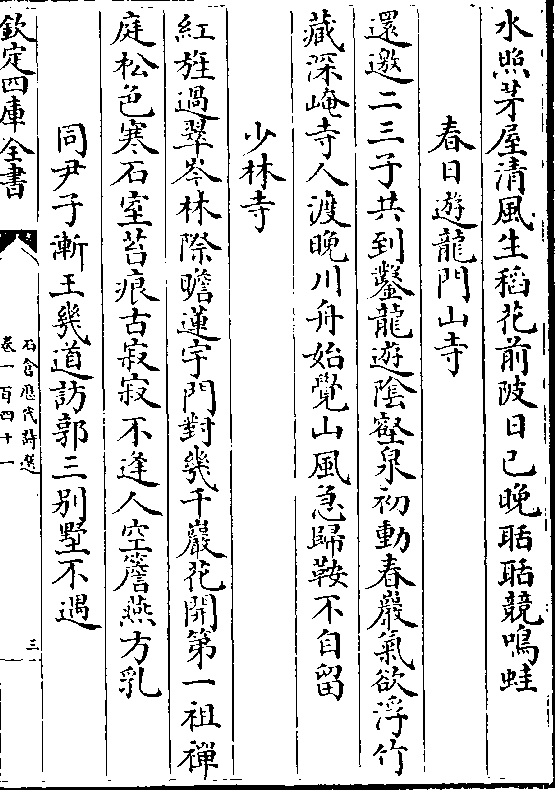 水照茅屋清風生稻花前陂日已晚聒聒競鳴蛙
春日遊龍門山寺
還邀二三子共到鑿龍遊陰壑泉初動春巖氣欲浮竹
藏深崦寺人渡晚川舟始覺山風急歸鞍不自留
少林寺
紅旌過翠岑林際瞻蓮宇門對幾千巖花開第一祖禪
庭松色寒石室苔痕古寂寂不逢人空簷燕方乳
同尹子漸王幾道訪郭三别墅不遇
欽定四庫全書
石倉歷代詩選
卷一百四十一
三